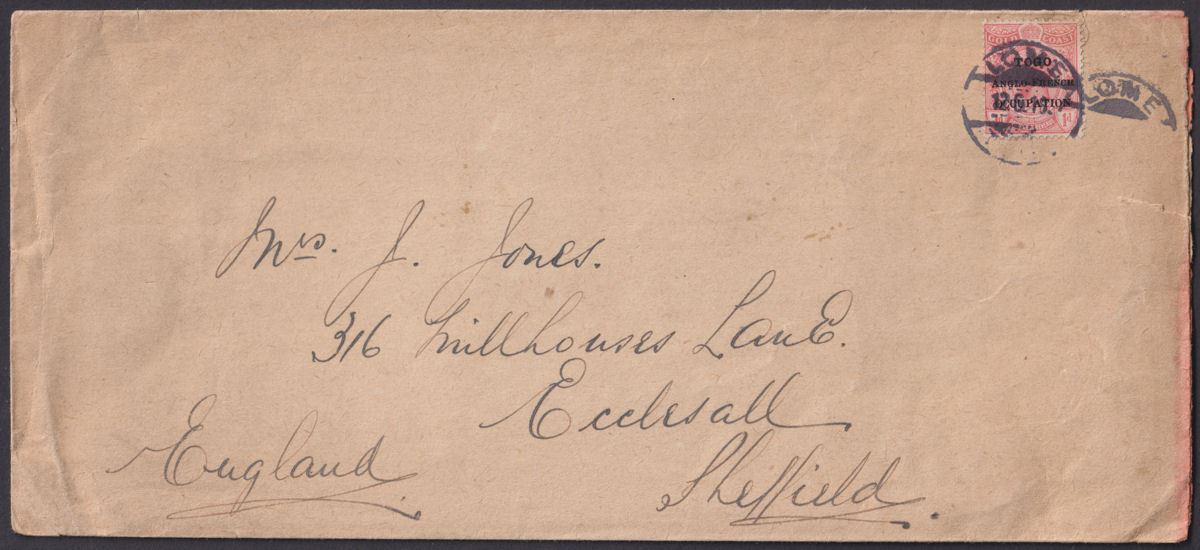 GOLD COAST
TOGO
ANGLO-FRENCH
OCCUPATION
1d
LOME
LOME
Mrs. J. Jones.
316 Millhouses Lane.
Ecclesall
Sheffield.
England